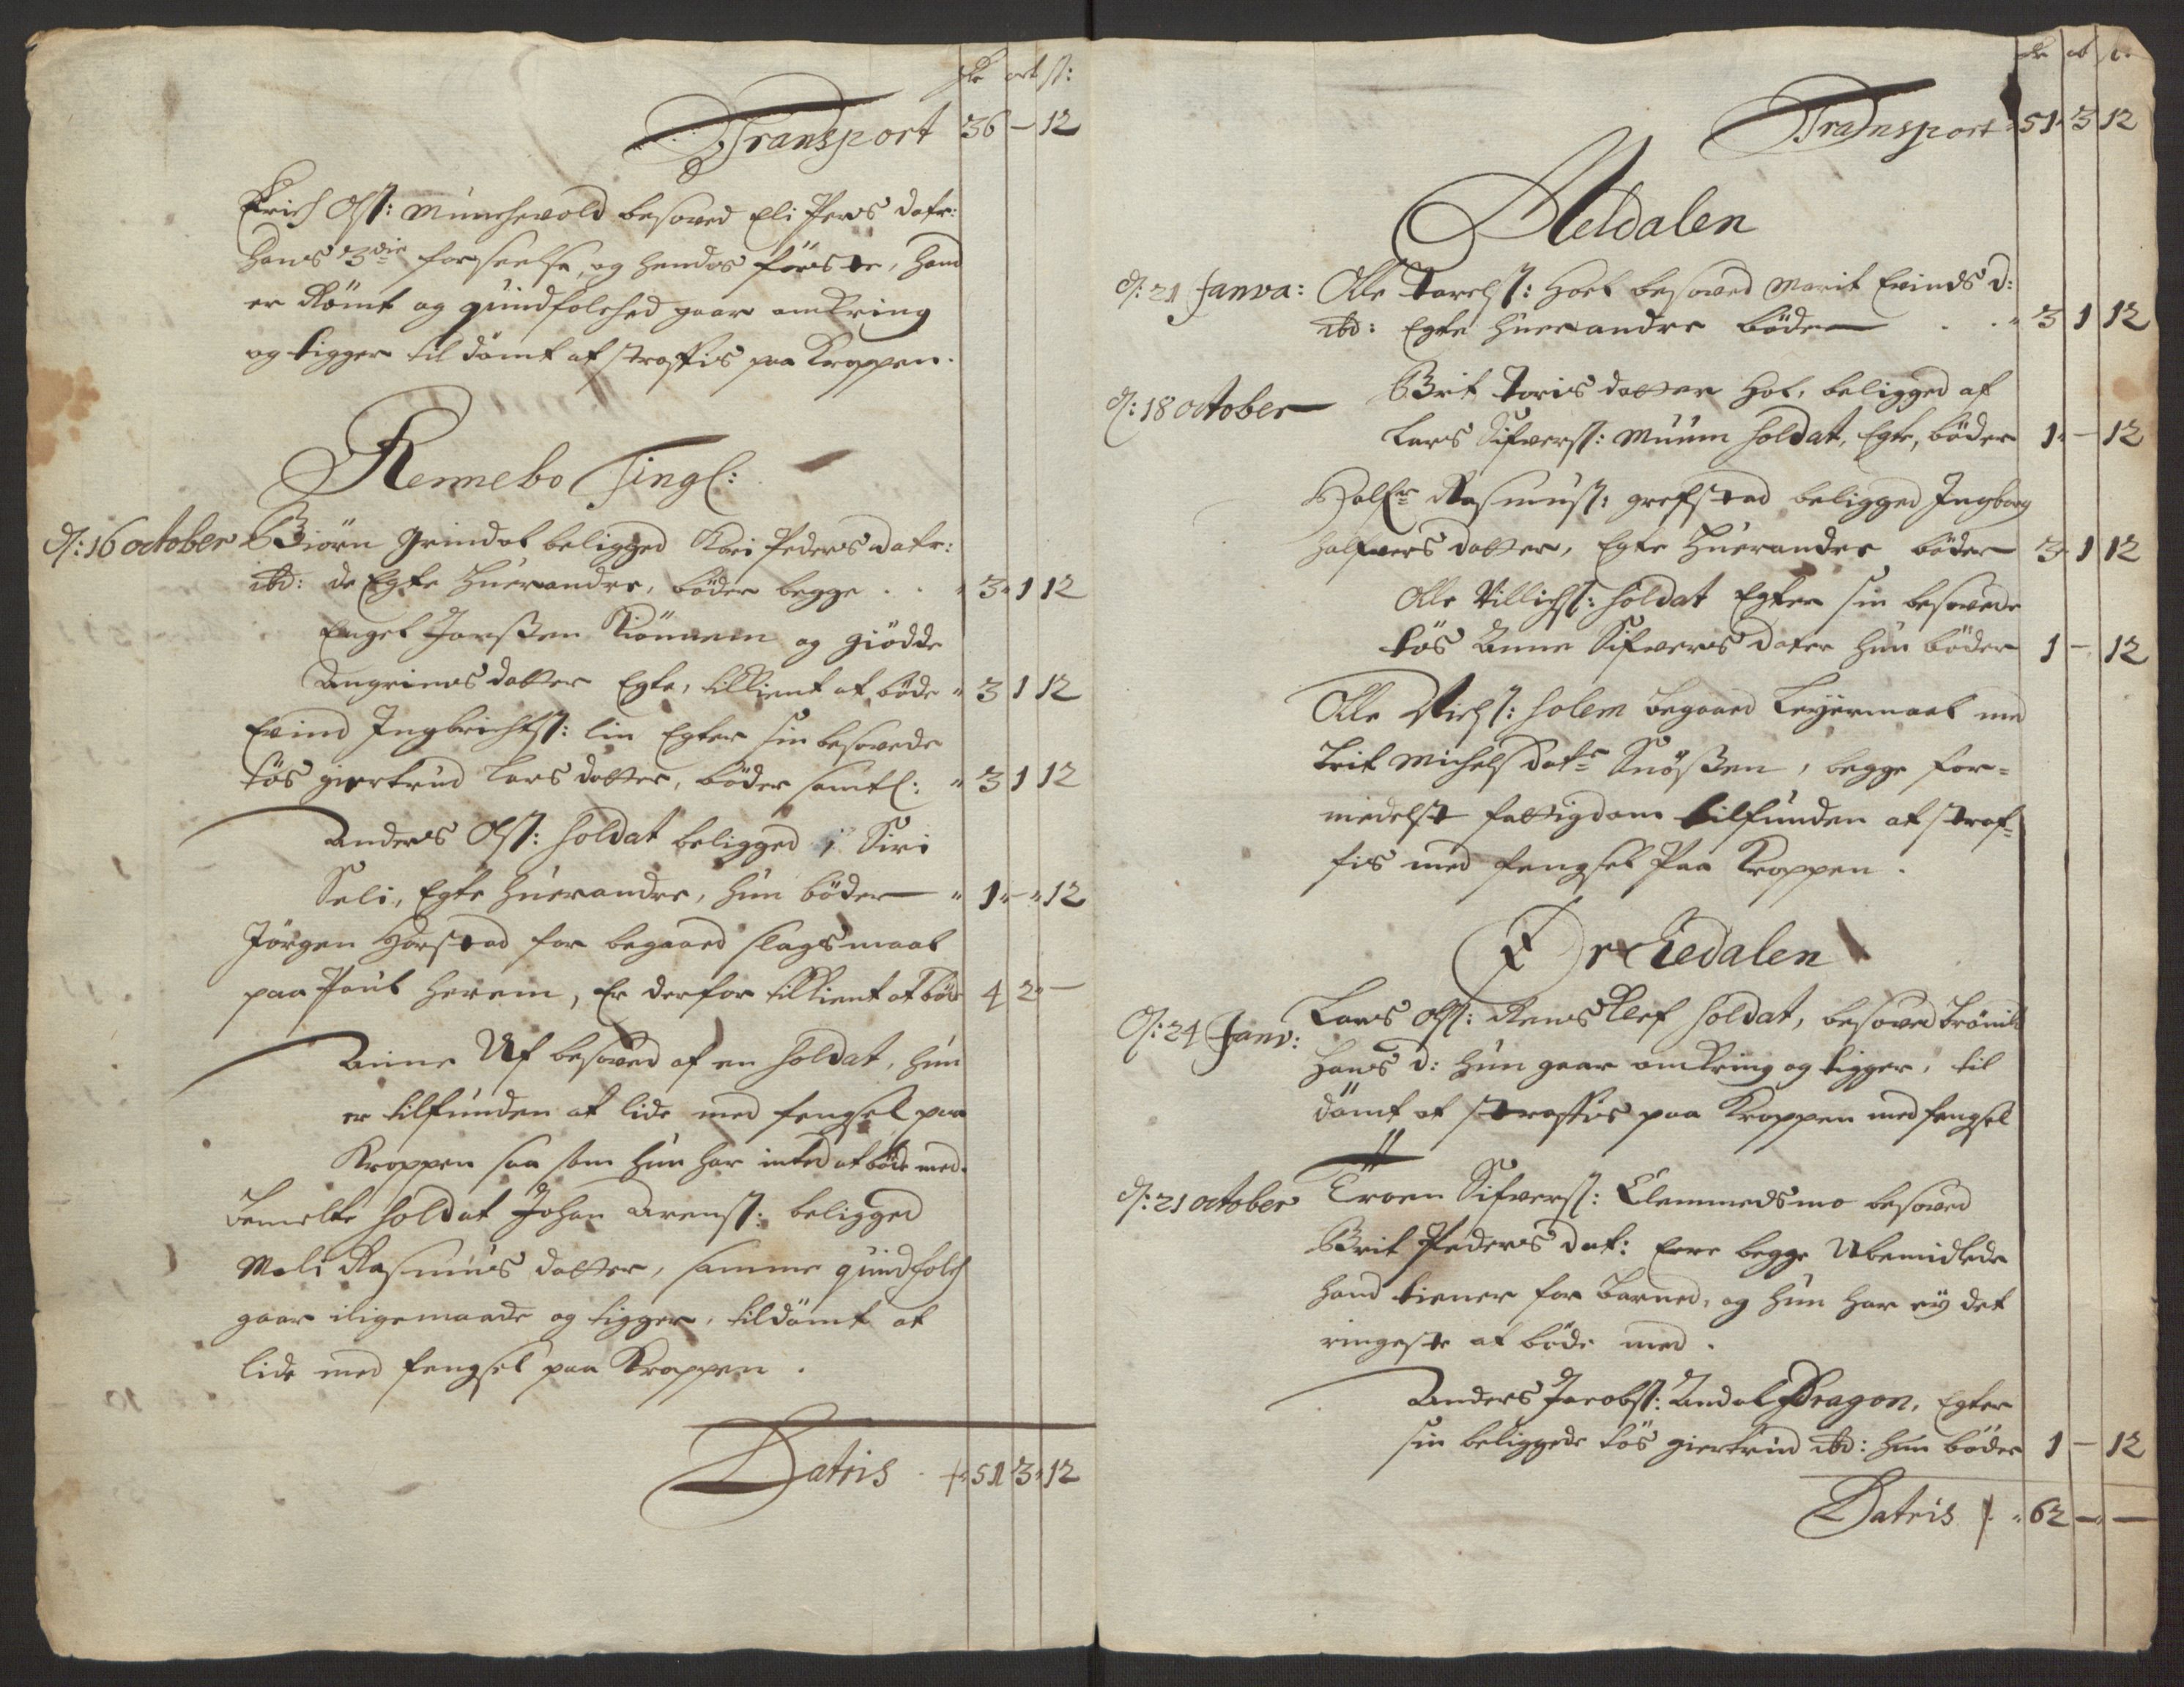 dr ort s:
Transport 36 – 12
Erich Ols: Munchevold besoved Eli Pers datr:
hans 3die forseelse, og hendes förste, hand
er Römt og quindfolched gaar omkring
og tigger til dömt at straffis paa Kroppen.
Rennebo Tingl:
d: 16 october Biörn Grindal beligged Kari Peders datr:
ibd: de Egte huerandre, böder begge . . 3 1 12
Engel Jonssen og giödde
Angriems datter Egte, tilkient at böde 3 1 12
Evind Ingbrichts: lin Egter sin besovede
tös giertrud Lars datter, böder samtl: 3 1 12
Anders Ols: soldat beligged Siri
Seli, Egte huerandre, hun böder 1 – 12
Jörgen Horstad for begaaed slagsmaal
paa Poul Herrem, Er derfor tilkient at böde 4 2 –
Anne Uf besoved af en soldat, hun
er tilfunden at lide med fengsel paa
Kroppen saa som hun har inted at böde med.
Bemelte soldat Johan Arens: beligged
Mali Rasmus datter, samme quindfolch
gaar iligemaade og tigger, tildömt at
lide med fengsel paa Kroppen.
Latris 51 3 12
dr ort s:
Transport 51 3 12
Meldalen
d: 21 Janva: Olle Torels: Hoel besoved Marit Evinds d:
ibd: Egte huerandre böder . . 3 1 12
d: 18 october Brit Toris datter Hol, beligged af
Lars Sifvers: Muum soldat, Egte, böder 1 – 12
Halfr Rasmus: grefstad beligged Ingborg
halfvers datter, Egte huerandre böder 3 1 12
Olle Villichs: soldat Egter sin besovede
tös Anne Sifvers dater hun böder 1 – 12
Olle Nichs: solem begaaed Leyermaal med
Brit Michels datr Snössen, begge for=
medelst fattigdom tilfunden at straf=
fis med fengsel paa Kroppen.
Orchedalen
d: 24 Janv: Lars Ols: Rens Klef soldat, besoved Brönild
Hans d: hun gaar omkring og tigger, til
dömt at straffis paa Kroppen med fengsel
d: 21 october Troen Sifvers: Clemmedsmo besoved
Brit Peders dat: Ere begge Ubemidlede
hand tiener for Barned, og hun har ey det
ringeste at böde med.
Anders Jacobs: Andal Dragon, Egter
sin beliggede tös giertrud ibd: hun böder 1 – 12
Latris 62 – –